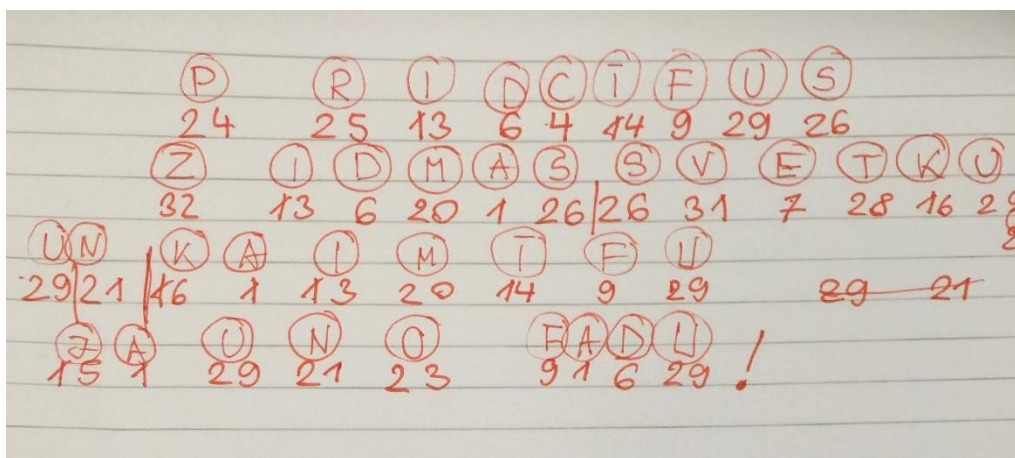 P R I D C Ī F U S
24 25 13 6 4 14 9 29 26
Z I D M A S S V E T K U
32 13 6 20 1 26|26 31 7 28 16
U N K A I M Ī F U
29|21 |16 1 13 20 14 9 29 29 21
J A U N O F A D U !
15 1 29 21 23 9 1 6 29